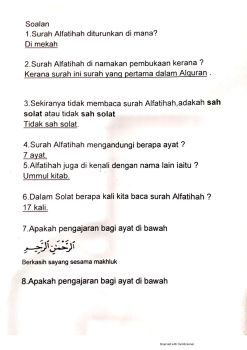 Soalan
1.Surah Alfatihah diturunkan di mana?
Di mekah
2.Surah Alfatihah di namakan pembukaan kerana ?
Kerana surah ini surah yang pertama dalam Alquran .
3.Sekiranya tidak membaca surah Alfatihah,adakah sah
solat atau tidak sah solat
Tidak sah solat.
4.Surah Alfatihah mengandungi berapa ayat ?
7 ayat.
5.Alfatihah juga di kenali dengan nama lain iaitu ?
Ummul kitab.
6.Dalam Solat berapa kali kita baca surah Alfatihah ?
17 kali.
7.Apakah pengajaran bagi ayat di bawah
الرَّحْمَٰنِ الرَّحِيمِ
Berkasih sayang sesama makhluk
8.Apakah pengajaran bagi ayat di bawah
Scanned with CamScanner